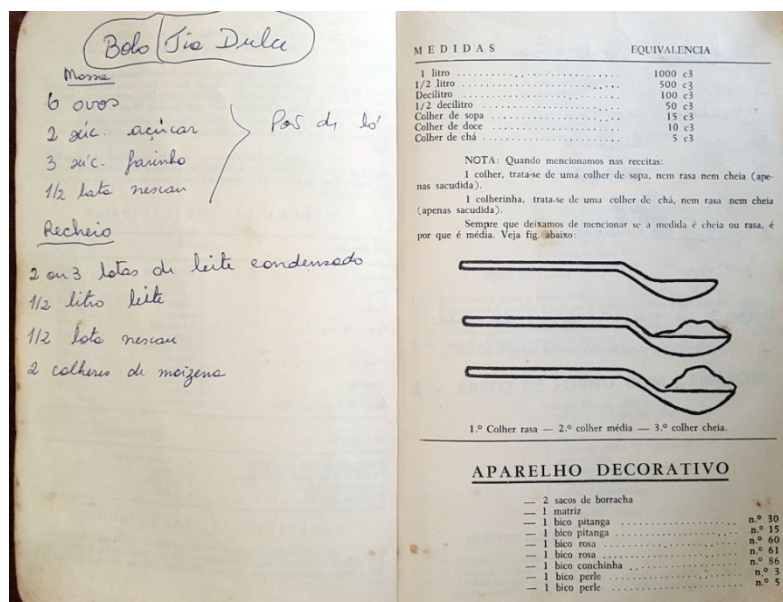 Bolo Tia Dulce
Massa
6 ovos
2 xíc. açúcar
3 xíc. farinha
1/2 lata nescau
Pão de ló
Recheio
2 ou 3 latas de leite condensado
1/2 litro leite
1/2 lata nescau
2 colheres de maizena
MEDIDAS EQUIVALENCIA
1 litro .................................. 1000 c3
1/2 litro .................................. 500 c3
Decilitro .................................. 100 c3
1/2 decilitro .................................. 50 c3
Colher de sopa .................................. 15 c3
Colher de doce .................................. 10 c3
Colher de chá .................................. 5 c3
NOTA: Quando mencionamos nas receitas:
1 colher, trata-se de uma colher de sopa, nem rasa nem cheia (ape-
nas sacudida).
1 colherinha, trata-se de uma colher de chá, nem rasa nem cheia
(apenas sacudida).
Sempre que deixamos de mencionar se a medida é cheia ou rasa, é
por que é média. Veja fig. abaixo:
1.º Colher rasa — 2.º colher média — 3.º colher cheia.
APARELHO DECORATIVO
— 2 sacos de borracha
— 1 matriz
— 1 bico pitanga .................... n.º 30
— 1 bico pitanga .................... n.º 15
— 1 bico rosa .................... n.º 60
— 1 bico rosa .................... n.º 61
— 1 bico conchinha .................... n.º 86
— 1 bico perle .................... n.º 3
— 1 bico perle .................... n.º 5